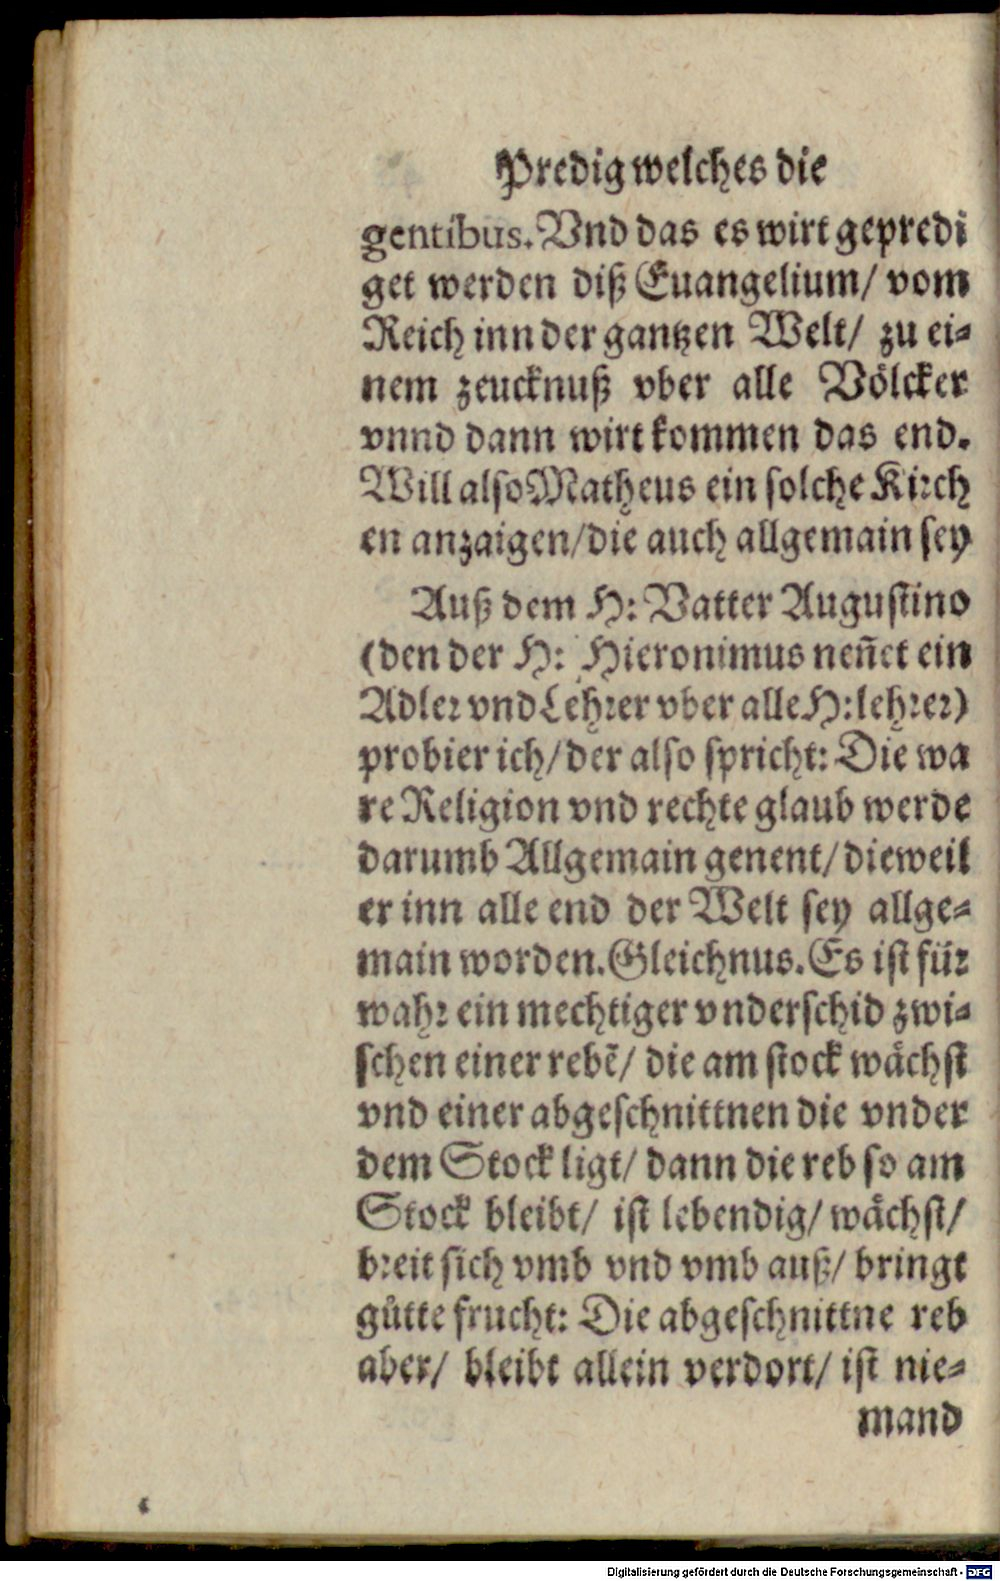 Predig welches die
gentibus. Vnd das es wirt gepredi
get werden diß Euangelium/ vom
Reich inn der gantzen Welt/ zu ei-
nem zeucknuß vber alle Völcker
vnnd dann wirt kommen das end.
Will also Matheus ein solche Kirch
en anzaigen/die auch allgemain sey
Auß dem H: Vatter Augustino
(den der H: Hieronimus neñet ein
Adler vnd Lehrer vber alle H:lehrer)
probier ich/der also spricht: Die wa
re Religion vnd rechte glaub werde
darumb Allgemain genent/ dieweil
er inn alle end der Welt sey allge-
main worden. Gleichnus. Es ist für
wahr ein mechtiger vnderschid zwi-
schen einer rebẽ/ die am stock wåchst
vnd einer abgeschnittnen die vnder
dem Stock ligt/ dann die reb so am
Stock bleibt/ ist lebendig/ wåchst/
breit sich vmb vnd vmb auß/ bringt
gůtte frucht: Die abgeschnittne reb
aber/ bleibt allein verdort/ ist nie-
mand
Digitalisierung gefördert durch die Deutsche Forschungsgemeinschaft - DFG